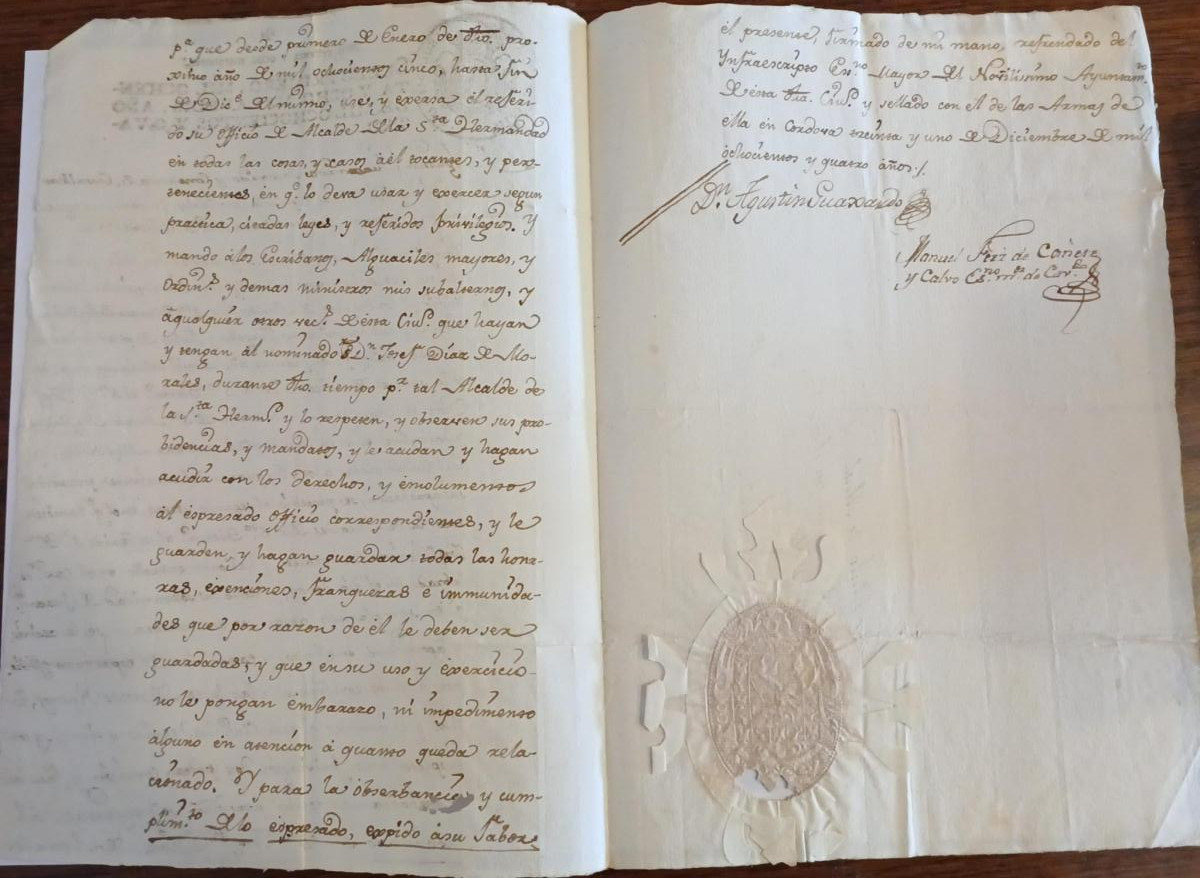 p.ª que desde primero de Enero de dho. pro-
ximo año de mil ochocientos cinco, hasta fin
de Dic.e del mismo, use, y exersa el referi-
do su officio de Alcalde de la S.ta Hermandad
en todas las cosas, y casos á él tocantes, y per-
tenecientes, en q.e lo deva usar y exercer segun
practica, citadas leyes, y referidos privilegios. Y
mando á los Escribanos, Alguaciles mayores, y
Ordin.s y demas ministros mis subalternos, y
á qualquier otros vec.s de ésta Ciu.d que hayan
y tengan al nominado S.r D.n Josef Díaz de Mo-
rales, durante dho. tiempo p.r tal Alcalde de
la S.ta Herm.d y lo respeten, y observen sus pro-
bidencias, y mandatos, y le acudan y hagan
acudir con los derechos, y émolumentos
ál éspresado officio correspondientes, y le
guarden, y hagan guardar todas las honr-
ras, exenciones, franquezas é immunida-
des que por razon de él le deben ser
guardadas, y que én su uso y éxercicio
no le pongan émbarazo, ni impedimento
alguno en atencion á quanto queda rela-
cionado. Y para la obserbancia, y cum-
plim.to de lo espresado, expido á su fabor
él presente, firmado de mi mano, refrendado del
Ynfraescripto Es.no Mayor del Novilisimo Ayuntam.to
de ésta dha. Ciu.d y sellado con el de las Armas de
ella en Cordova treinta y uno de Diciembre de mil
óchocientos y quatro años./.
D.n Agustin Guaxardo
Manuel Frz de Cañete
y Calvo Es.no m.r de Cav.do